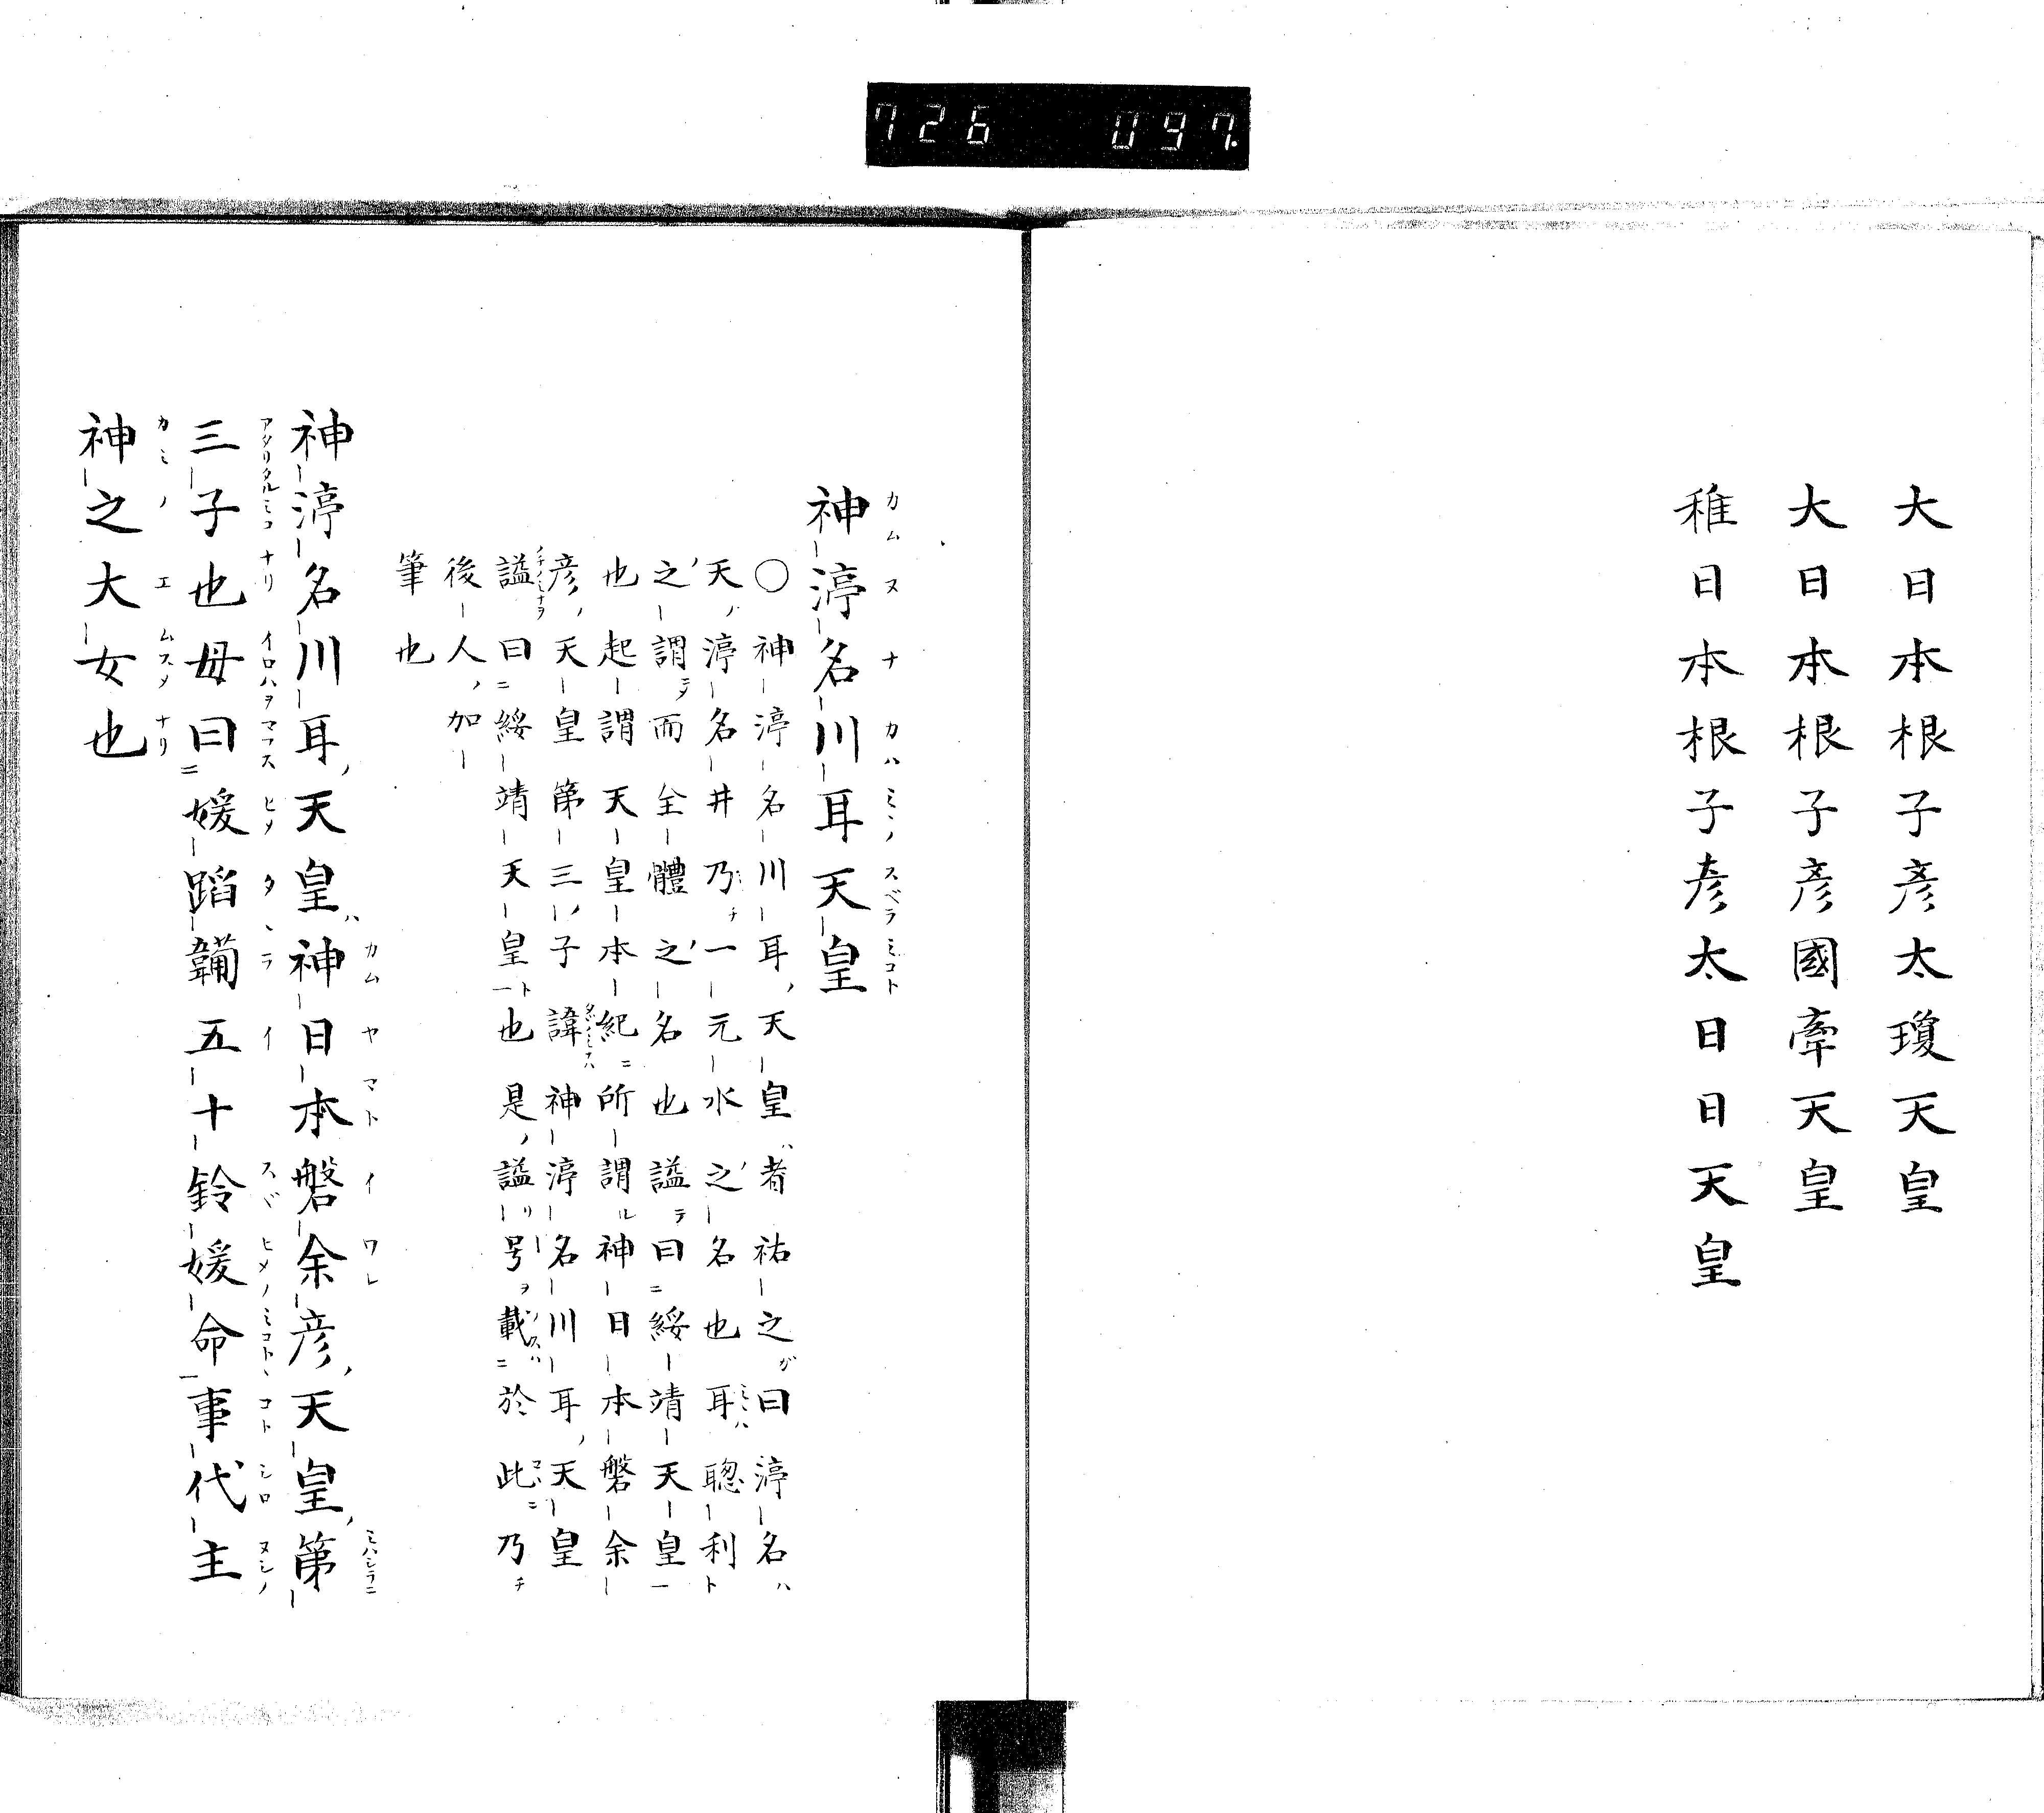 726 097.
大日本根子彥太瓊天皇
大日本根子彥國牽天皇
稚日本根子彥太日日天皇
神渟名川耳天皇
○神渟名川耳天皇者祐之曰渟名
天渟名井乃一元水之名也耳聰利
之謂而全體之名也謚曰綏靖天皇
也起謂天皇本紀所謂神日本磐余
彦天皇第三子諱神渟名川耳天皇
謚曰綏靖天皇也是謚号載於此乃
後人加
筆也
神渟名川耳天皇神日本磐余彦天皇第
三子也母曰媛蹈韛五十鈴媛命事代主
神之大女也